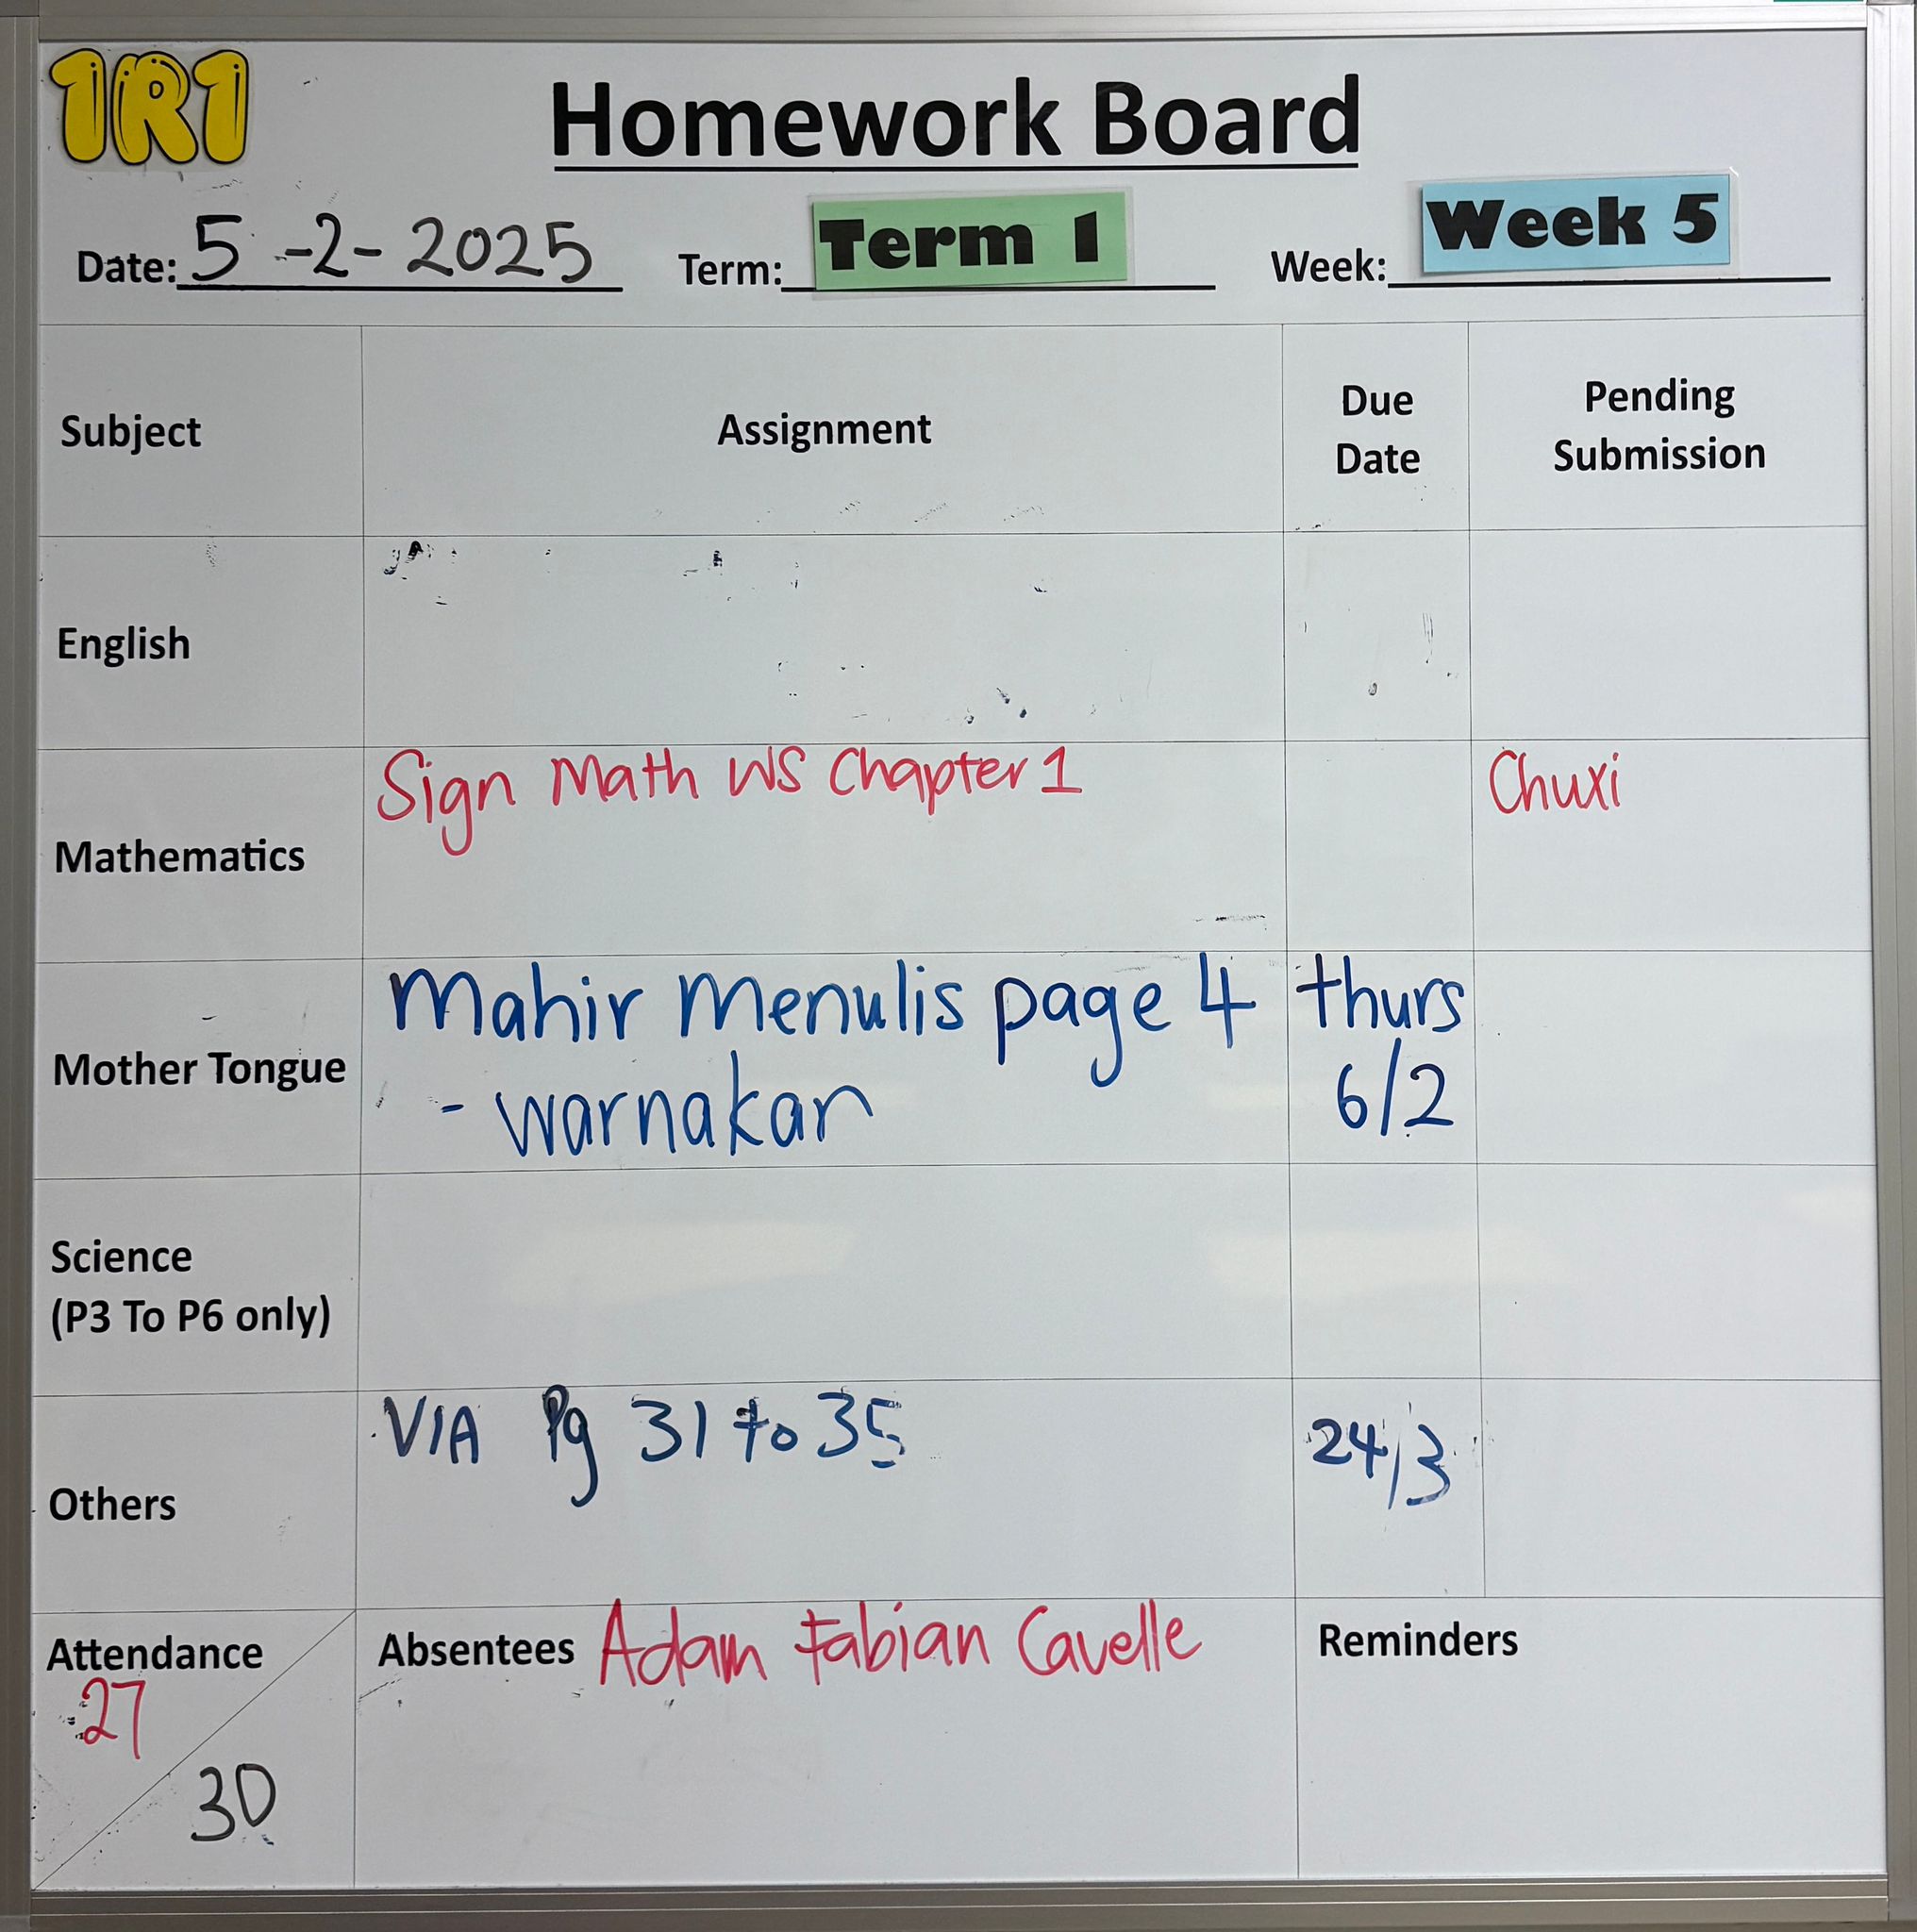 1R1
Homework Board
Date: 5-2-2025 Term: Term 1 Week: Week 5
Subject Assignment Due Date Pending Submission
English
Mathematics Sign Math WS Chapter 1 Chuxi
Mother Tongue Mahir Menulis page 4 thurs
- warnakan 6/2
Science
(P3 To P6 only)
Others VIA Pg 31 to 35 24/3
Attendance Absentees Adam Fabian Cavelle Reminders
27
30